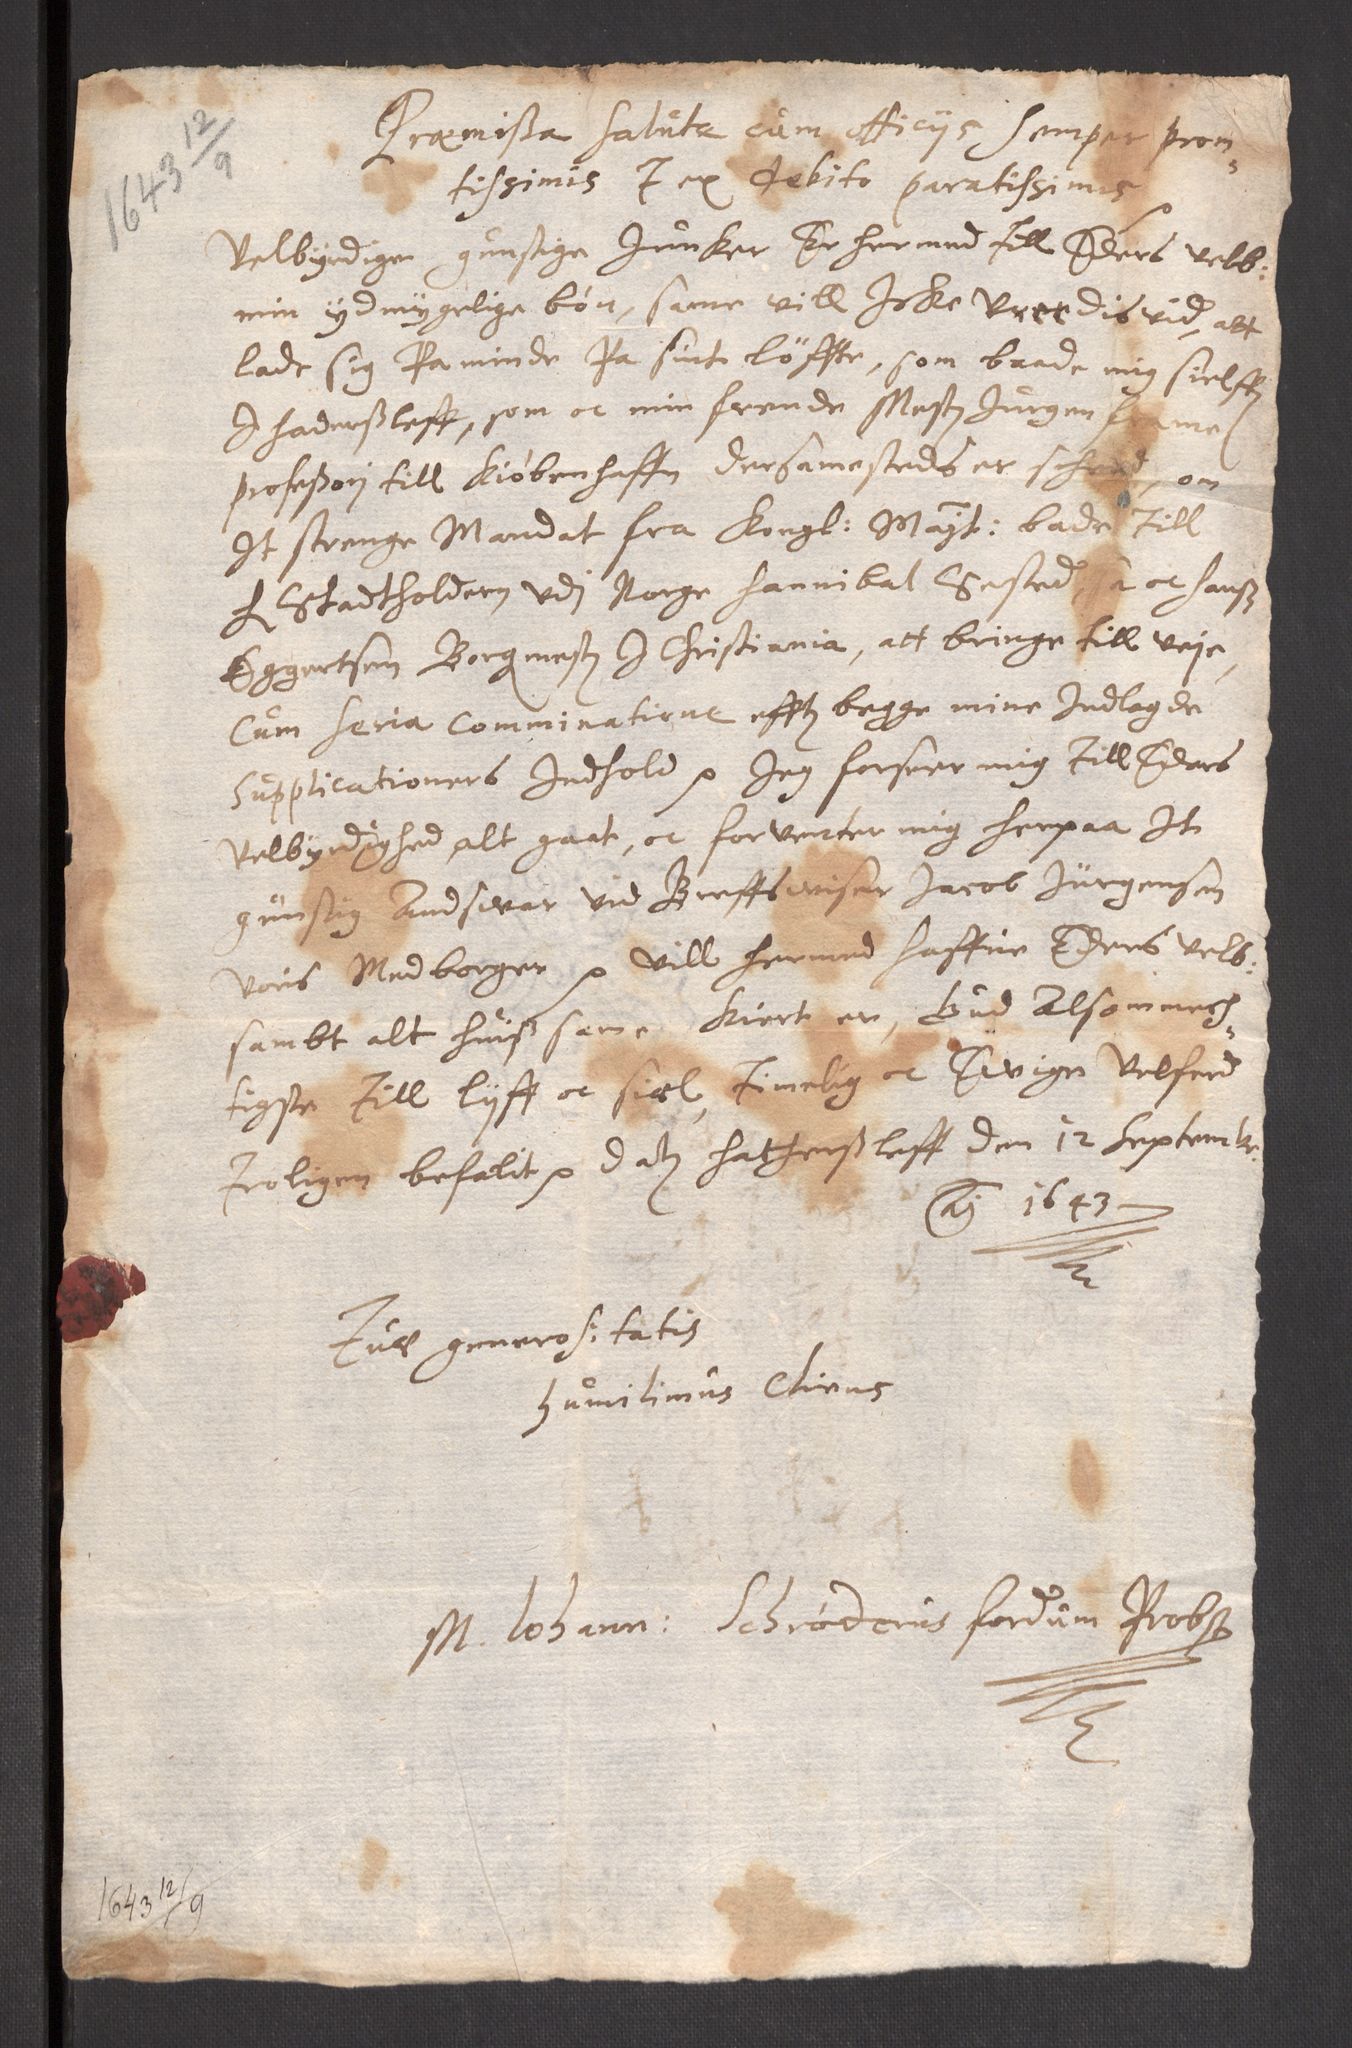 1643 12/9
Præmissa salute cum officijs semper prom-
tissimis & ex debito paratissimis
Velbyrdige gunstige Juncker Er hermed till Eders velb:
min ydmygelige bön, samme vill Icke vreedis vid, att
lade sig Paminde Pa sint löffte, som baade mig sielff
I haderssleff, som oc min frende Mestr Jurgen framel
professorj till Kiöbenhaffn dersamesteds er scheed, om
It strenge Mandat fra Kongl: Majt: bade till
H Stadtholdern vdj Norge Hannibal Sested, oc hanss
Eggertsen Borgmestr I Christiania, att bringe till veje,
cum seria comminatione efftr begge mine Indlagde
supplicationers Indhold Jeg forseer mig till Eders
velbyrdighed alt gaat, oc forventer mig herpaa It
gunstig Andswar vid Breffswiser Jacob Jürgensen
voris Medborger vill hermed haffue Eders velb:
sambt alt huiss same kiert er, Gud Alsommech-
tigste till lyff oc siæl, timelig oc Ewige velferd
troligen befalit Datr hatherssleff den 12 Septembr:
Aõ 1643
Tuæ generositatis
humilimus cliens
M. Johann: Schröderus fordum Probst
1643 12/9